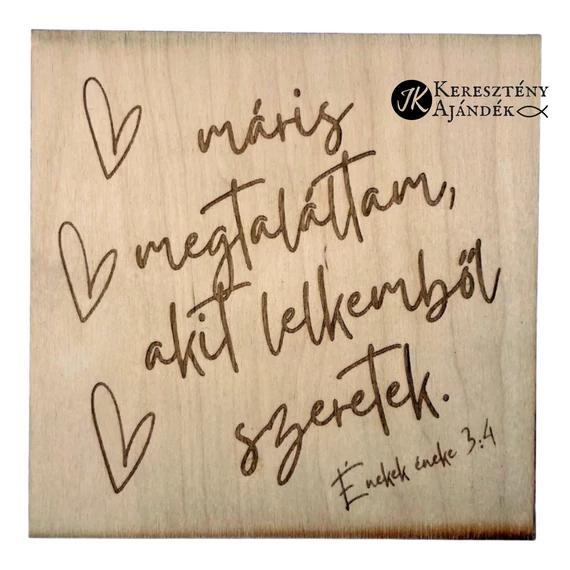 JK Keresztény
Ajándék
máris
megtaláltam,
akit lelkemből
szeretek.
Énekek éneke 3:4